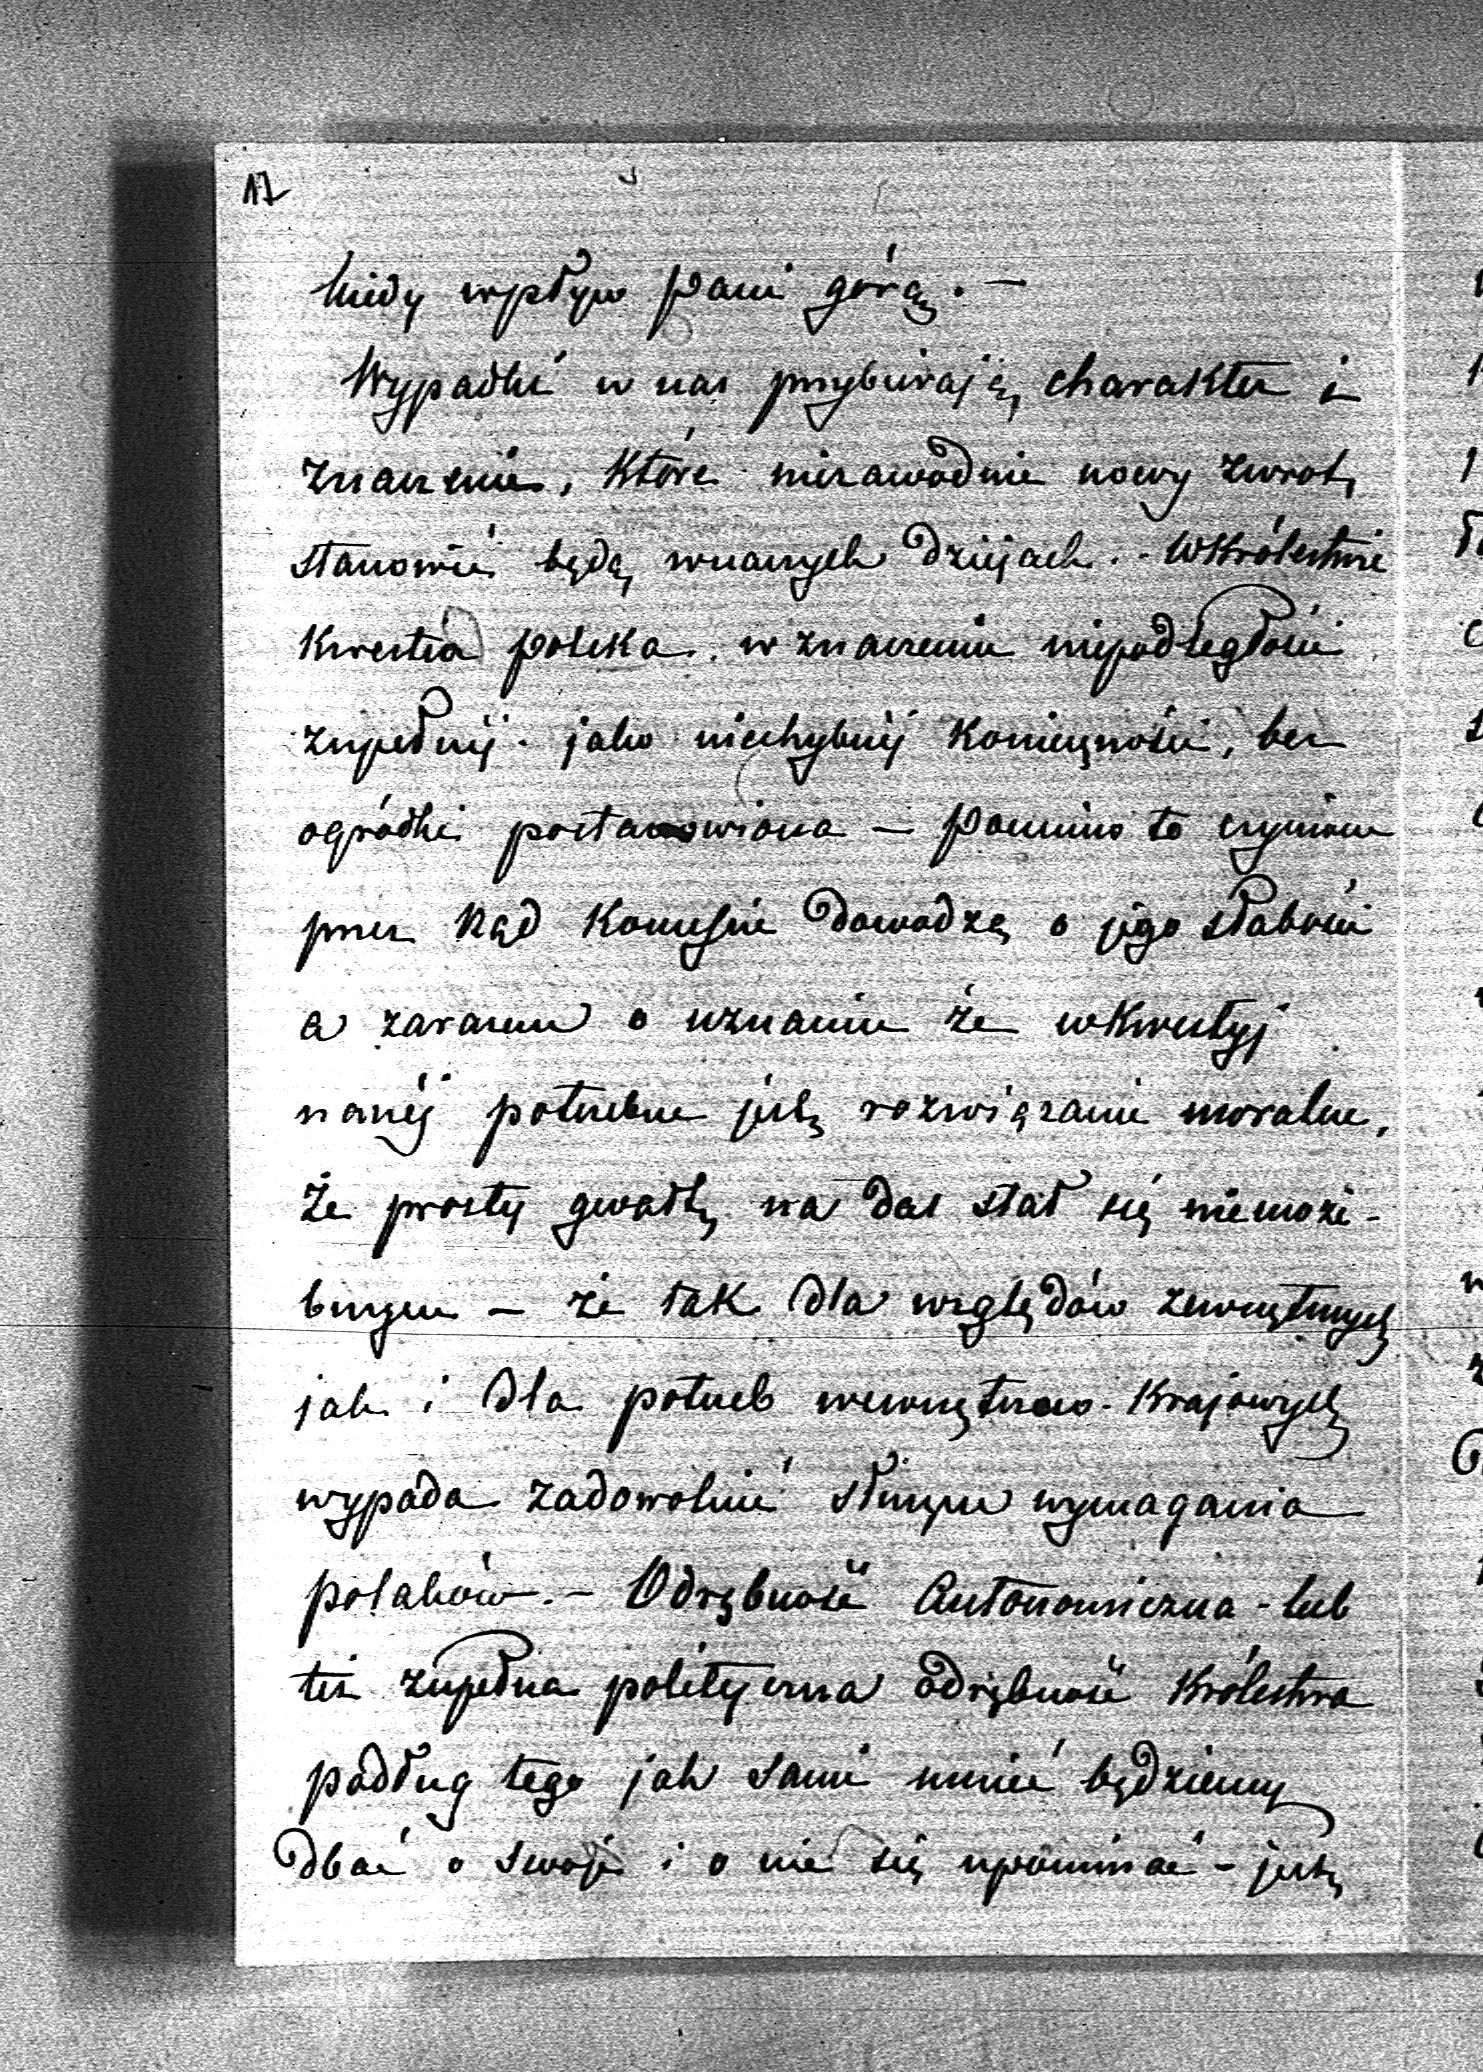 17
kiedy wpływ Pani górą. —
Wypadki u nas przybierają charakter i
znaczenie, które niezawodnie nowy zwrot
stanowić będą w naszych dziejach. - W Królestwie
Kwestia polska w znaczeniu niepodległości
zupełnéj - jako niechybnéj Konieczności, bez
ogródki postanowiona — Pomimo to czynione
przez Rząd Koncessie dowodzą o jego słabości
a zarazem o uznaniu że w Kwestyj
naszéj potrzebne jest rozwiązanie moralne,
że prosty gwałt na das stał się niemoże-
bnym — że tak dla względów zewnętrznych
jak i dla potrzeb wewnętrzno-Krajowych
wypada zadowolnić słuszne wymagania
polaków. — Odrębność Autonomiczna - lub
też zupełna polityczna odrębność Królestwa
podług tego jak sami umieć będziemy
dbać o swoje i o nie się upominać - jest